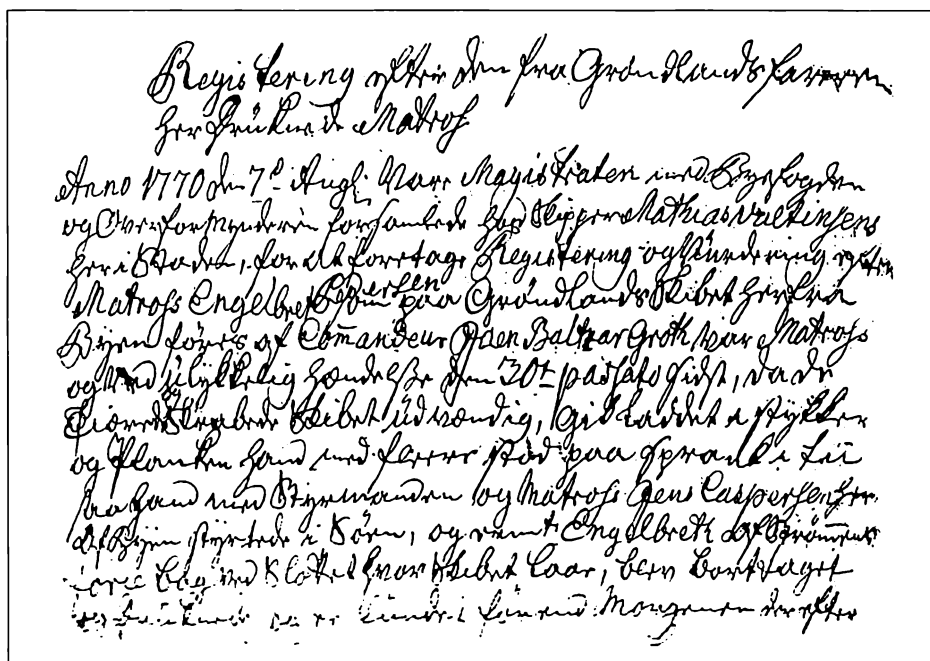 Registering efter den fra Grøndlandsfareren
her drukned Matros
Anno 1770 den 7de Aug: Vare Magistraten med Byefogden
og Overformynderen forsamlede hos Skipper Mathias Valtinsens
her i Staden, for at foretage Registering og Vurdering efter
Matrohs Engelbret som paa GrøndlandsSkibet her fra
Byen føres af Commandeur Baltzar Groth var Matrohs
og ved ulykkelig hændelse den 30te passato sidst, da de
og Skrabede Skibet udvændig, gik Laddet i stykker
og Planken hand med fleere stod paa sprank i tu
saa hand med Styrmanden og Matrohs Jens Caspersen her
af Byen styrtede i Søen, og bemte Engelbreth af Strømmens
bag ved Slottet hvor Skibet laae, blev borttaget
og førend Morgenen derefter